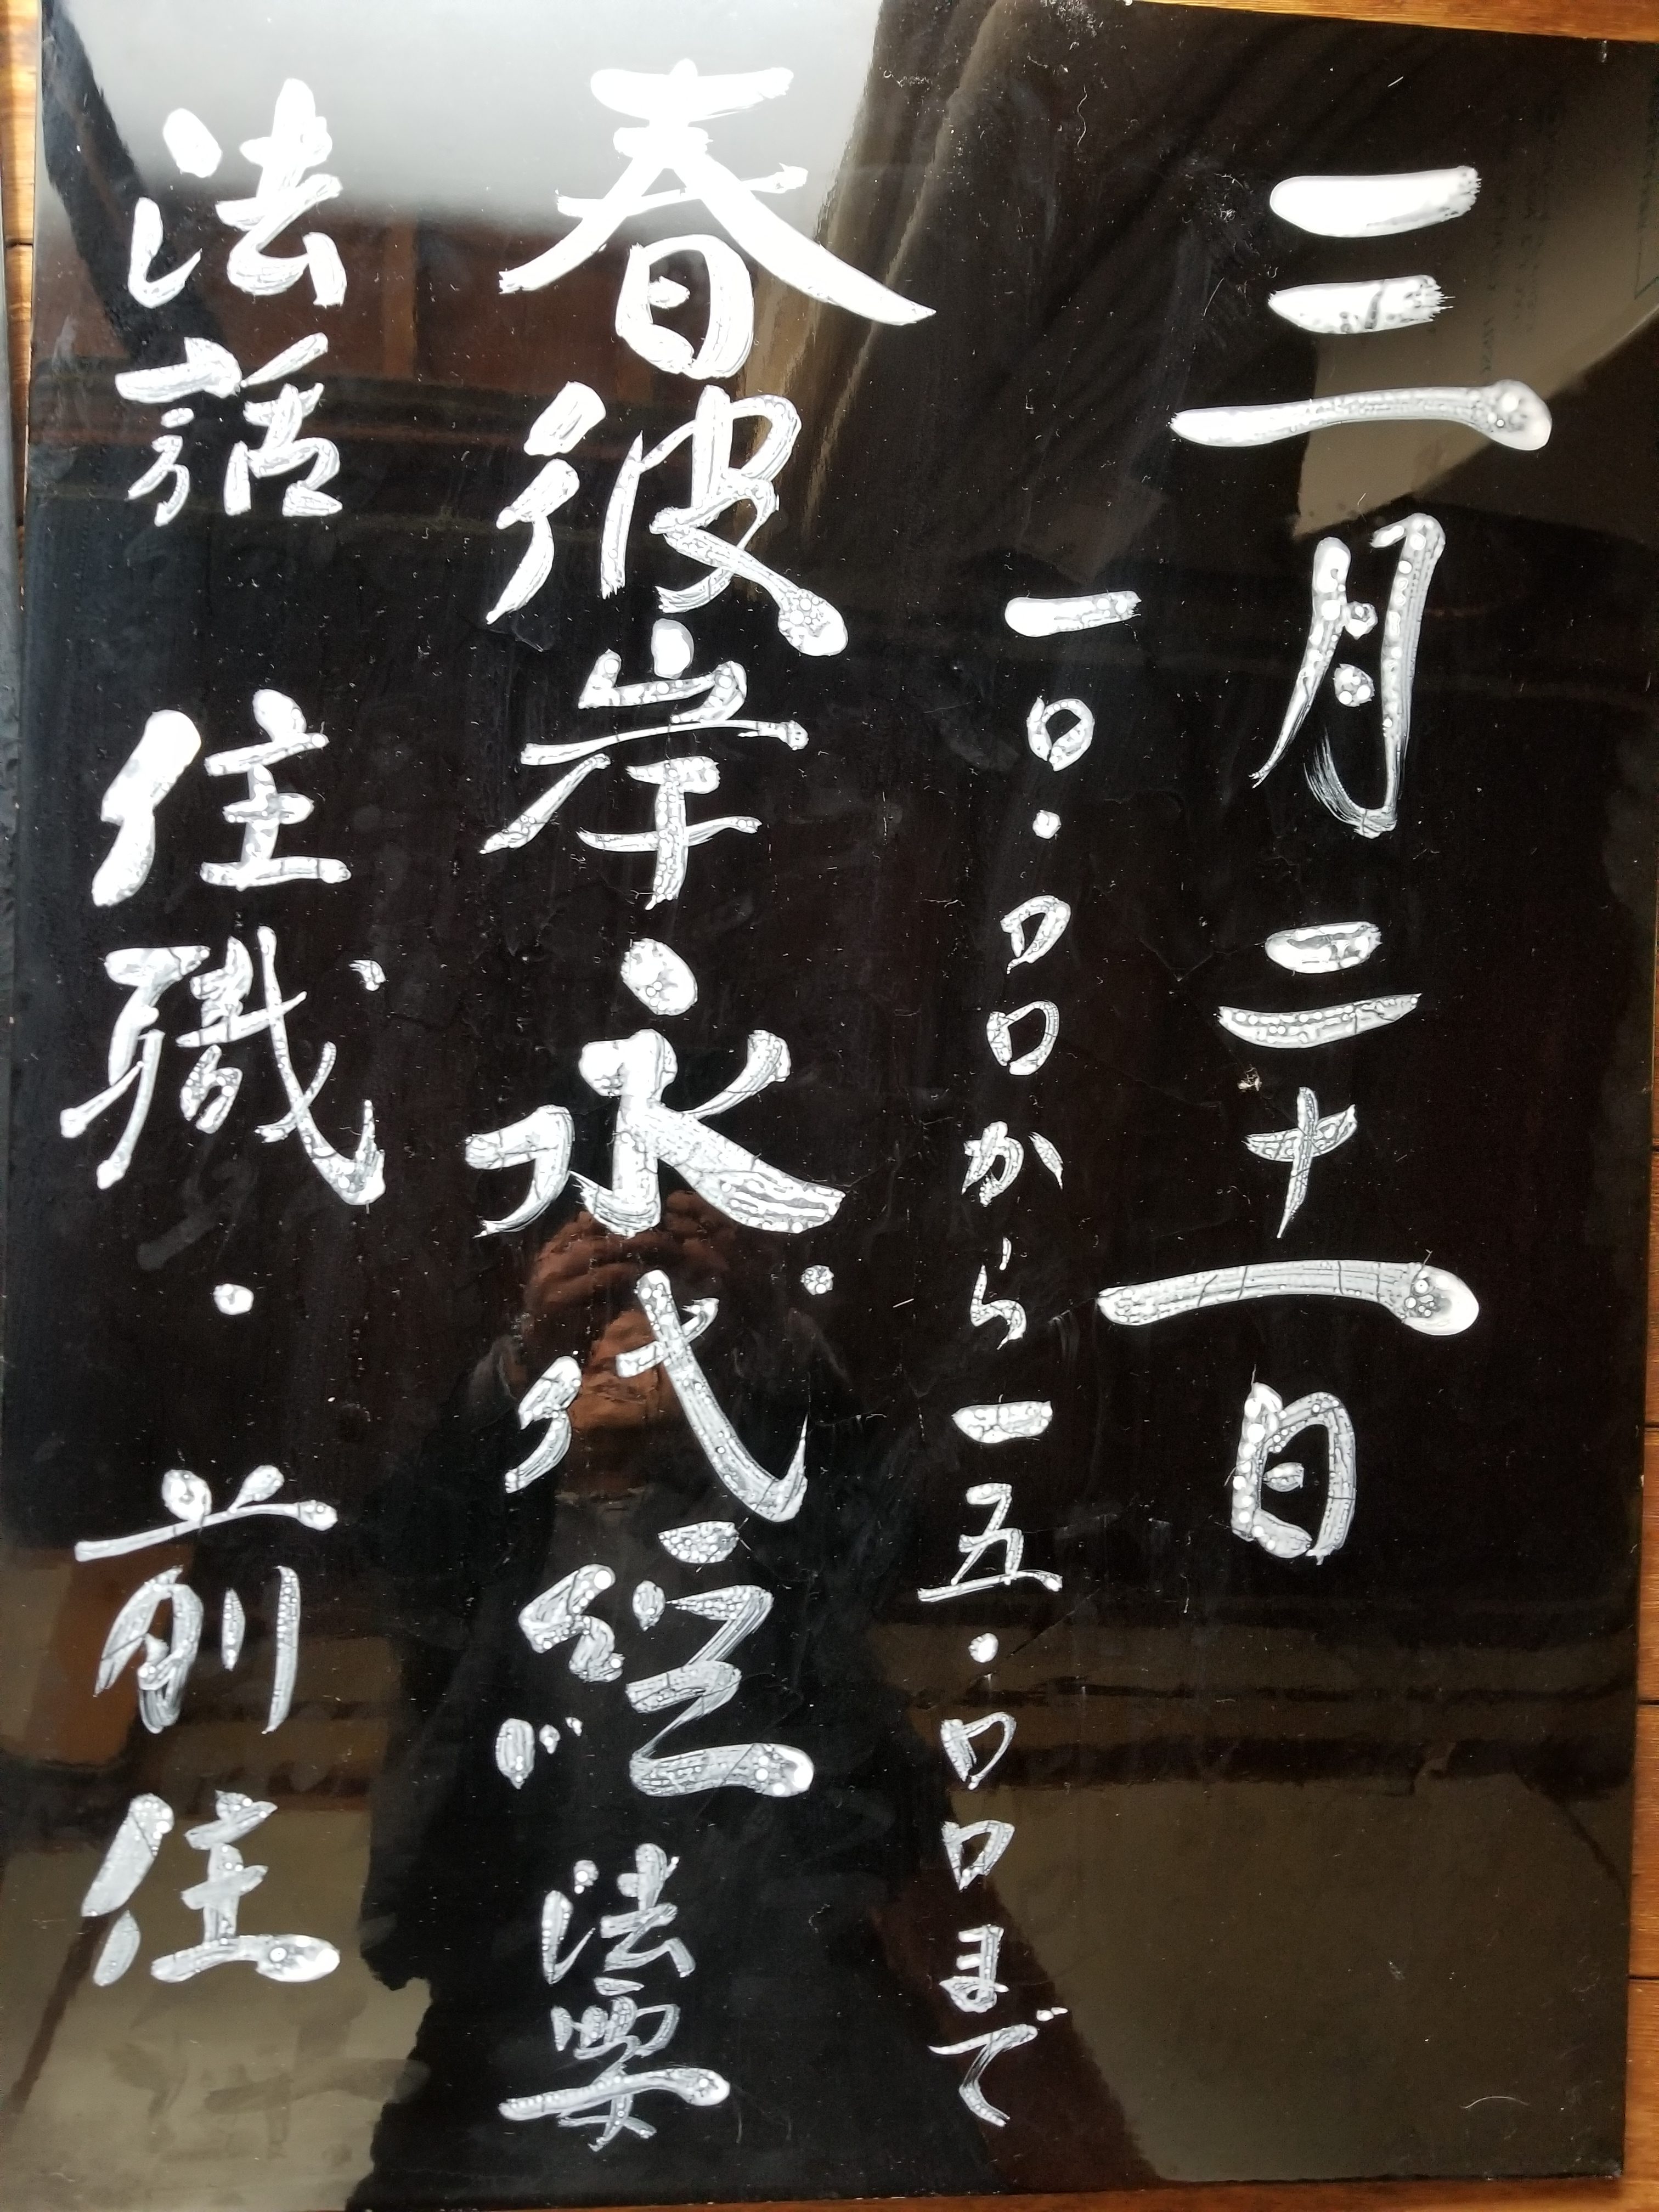 三月二十一日
一〇・〇〇から一五・〇〇まで
春彼岸永代経法要
法話 住職・前住